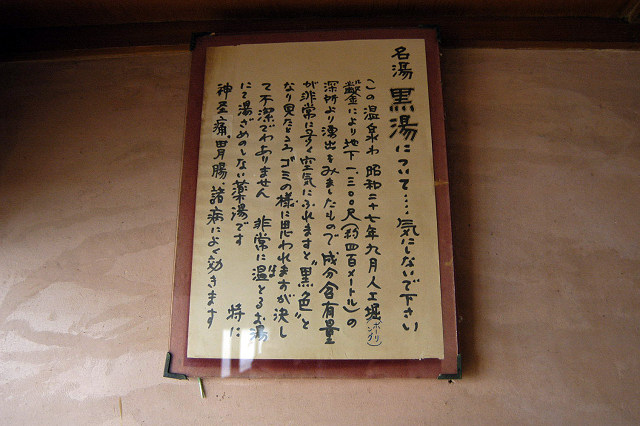 名湯 黒湯について‥‥気にしないで下さい
この温泉わ 昭和二十七年九月人工堀(ボーリング)
鑿により地下一、三〇〇尺(約四百メートル)の
深所より湧出をみましたもので 成分含有量
が非常に多く空気にふれますと"黒色"と
なり見たところゴミの様に思われますが決し
て不潔でわありません 非常に温まるお湯
にて湯ざめのしない薬湯です 特に
神圣痛、胃腸、諸病によく効きます